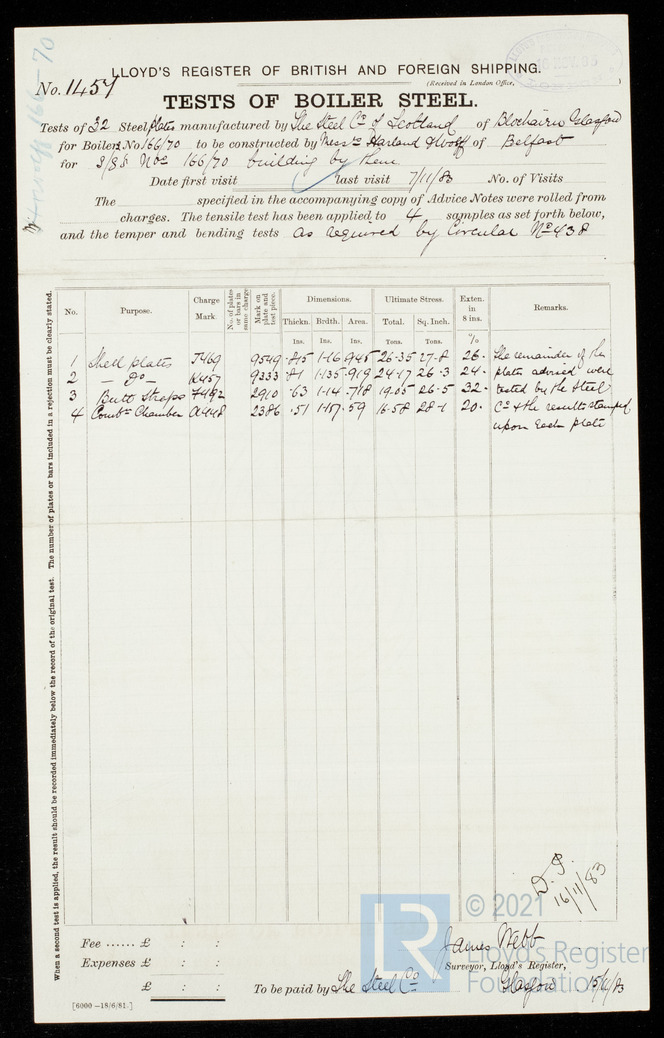 LLOYD'S REGISTER OF BRITISH AND FOREIGN SHIPPING.
No. 1457
(Received in London Office,                    )
TESTS OF BOILER STEEL.
Tests of 32 Steel plates manufactured by The Steel Co. of Scotland of Blochairn Glasgow
for Boilers No 166/70 to be constructed by Messrs Harland & Wolff of Belfast
for S/SS Nos 166/70 building by them
Date first visit last visit 7/11/83 No. of Visits
The specified in the accompanying copy of Advice Notes were rolled from
charges. The tensile test has been applied to 4 samples as set forth below,
and the temper and bending tests as required by Circular No 438
No. Purpose. Charge Mark. No. of plates or bars in same charge Mark on plate and test piece. Dimensions. Ultimate Stress. Exten. in 8 ins. Remarks.
Thickn. Brdth. Area. Total. Sq. Inch.
Ins. Ins. Ins. Tons. Tons. %
1 Shell plates J469 9549 .815 1.16 .945 26.35 27.8 26. The remainder of the
2 — do — K457 9333 .81 1.135 .919 24.17 26.3 24. plates advised were
3 Butt Straps 2910 .63 1.14 .718 19.05 26.5 32. tested by the Steel
4 Combn Chamber A448 2386 .51 1.157 .59 16.58 28.1 20. Co & the results stamped
upon each plate
When a second test is applied, the result should be recorded immediately below the record of the original test. The number of plates or bars included in a rejection must be clearly stated.
16/11/83
Fee ...... £ : :
Expenses £ : :
£ : :
James Webb
Surveyor, Lloyd's Register,
To be paid by The Steel Co Glasgow 15/11/83
[6000 -18/6/81.]
LR
© 2021
Lloyd's Register
Foundation